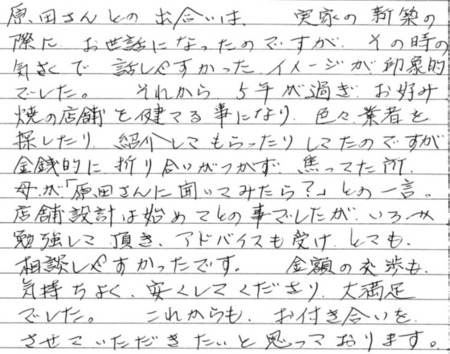 原田さんとの出合いは、実家の新築の
際に、お世話になったのですが、その時の
気さくで話しやすかったイメージが印象的
でした。それから5年が過ぎ、お好み
焼の店舗を建てる事になり、色々業者を
探したり、紹介してもらったりしてたのですが
金銭的に折り合いがつかず、焦ってた所、
母が「原田さんに聞いてみたら?」との一言。
店舗設計は始めてとの事でしたが、いろいろ
勉強して頂き、アドバイスも受け、とても、
相談しやすかったです。金額の交渉も、
気持ちよく、安くしてくださり、大満足
でした。これからも、お付き合いを
させていただきたいと思っております。